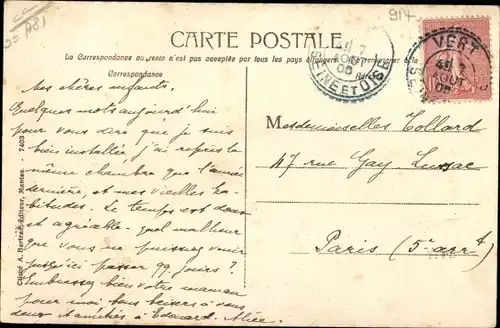 914
CARTE POSTALE
La Correspondance au recto n'est pas acceptée par tous les pays étrangers
Correspondance
VERT
SEINE ET OISE
Mes chères enfants,
Quelques mots aujourd'hui
pour vous dire que je suis
bien installée j'ai repris la
même chambre que l'année
dernière, et mes vieilles ha-
bitudes. Le temps est doux
et agréable. quel malheur
que vous ne puissiez venir
jusqu'ici passer qq jours ?
Embrassez bien votre maman
pour moi bons baisers à vous
deux amitiés à Edouard. Alice.
Mesdemoiselles Collard
47 rue Gay Lussac
Paris (5e arrt)
Cliché A. Bertran, éditeur, Mantes. - 7403